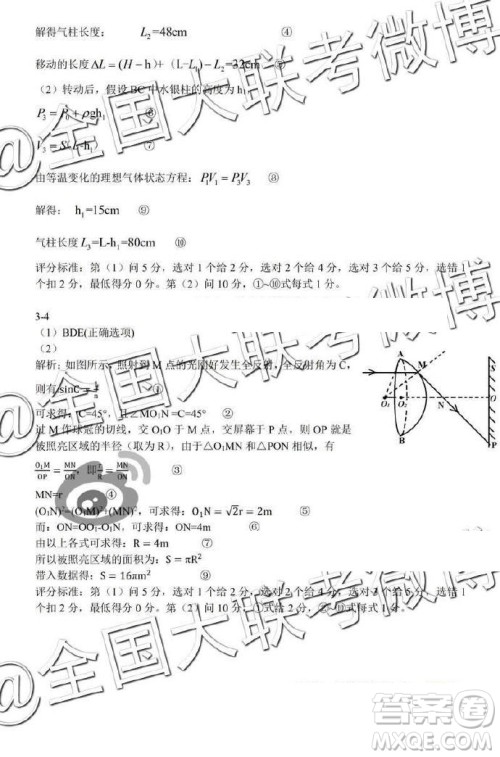 解得气柱长度： L₂=48cm ④
移动的长度ΔL=(H-h)+(L-L₁)-L₂=22cm ⑤
（2）转动后，假设BC中水银柱的高度为h₁
P₃=P₀+ρgh₁
V₃=S(L-h₁) ⑦
由等温变化的理想气体状态方程：P₁V₁=P₃V₃ ⑧
解得： h₁=15cm ⑨
气柱长度L₃=L-h₁=80cm ⑩
评分标准：第（1）问 5 分，选对 1 个给 2 分，选对 2 个给 4 分，选对 3 个给 5 分，选错 1
个扣 2 分，最低得分 0 分。第（2）问 10 分，①~⑩式每式 1 分。
3-4
（1）BDE(正确选项)
（2）
解析：如图所示，照射到 M 点的光刚好发生全反射，全反射角为 C，
则有 sinC=
可求得：C=45°，且∠MO₁N=C=45° ②
过 M 作球冠的切线，交 O₁O 于 N 点，交屏幕于 P 点，则 OP 就是
被照亮区域的半径（取为 R），由于△O₁MN 和△PON 相似，有
O₁M/OP=MN/ON，即r/R=MN/ON ③
MN=r ④
(O₁N)²-(O₁M)²=(MN)²，可求得：O₁N=√2r=2m ⑤
而：ON=OO₁-O₁N，可求得：ON=4m ⑥
由以上各式可求得：R=4m ⑦
所以被照亮区域的面积为：S=πR²
带入数据得：S=16πm² ⑨
评分标准：第（1）问 5 分，选对 1 个给 2 分，选对 2 个给 4 分，选对 3 个给 5 分，选错 1
个扣 2 分，最低得分 0 分。第（2）问 10 分，①式给 2 分，②~⑨式每式 1 分。
A
M
S
O₁
O₂
N
O
B
P
@全国大联考微博
@全国大联考微博
@全国大联考微博
答案圈
MXQE.COM